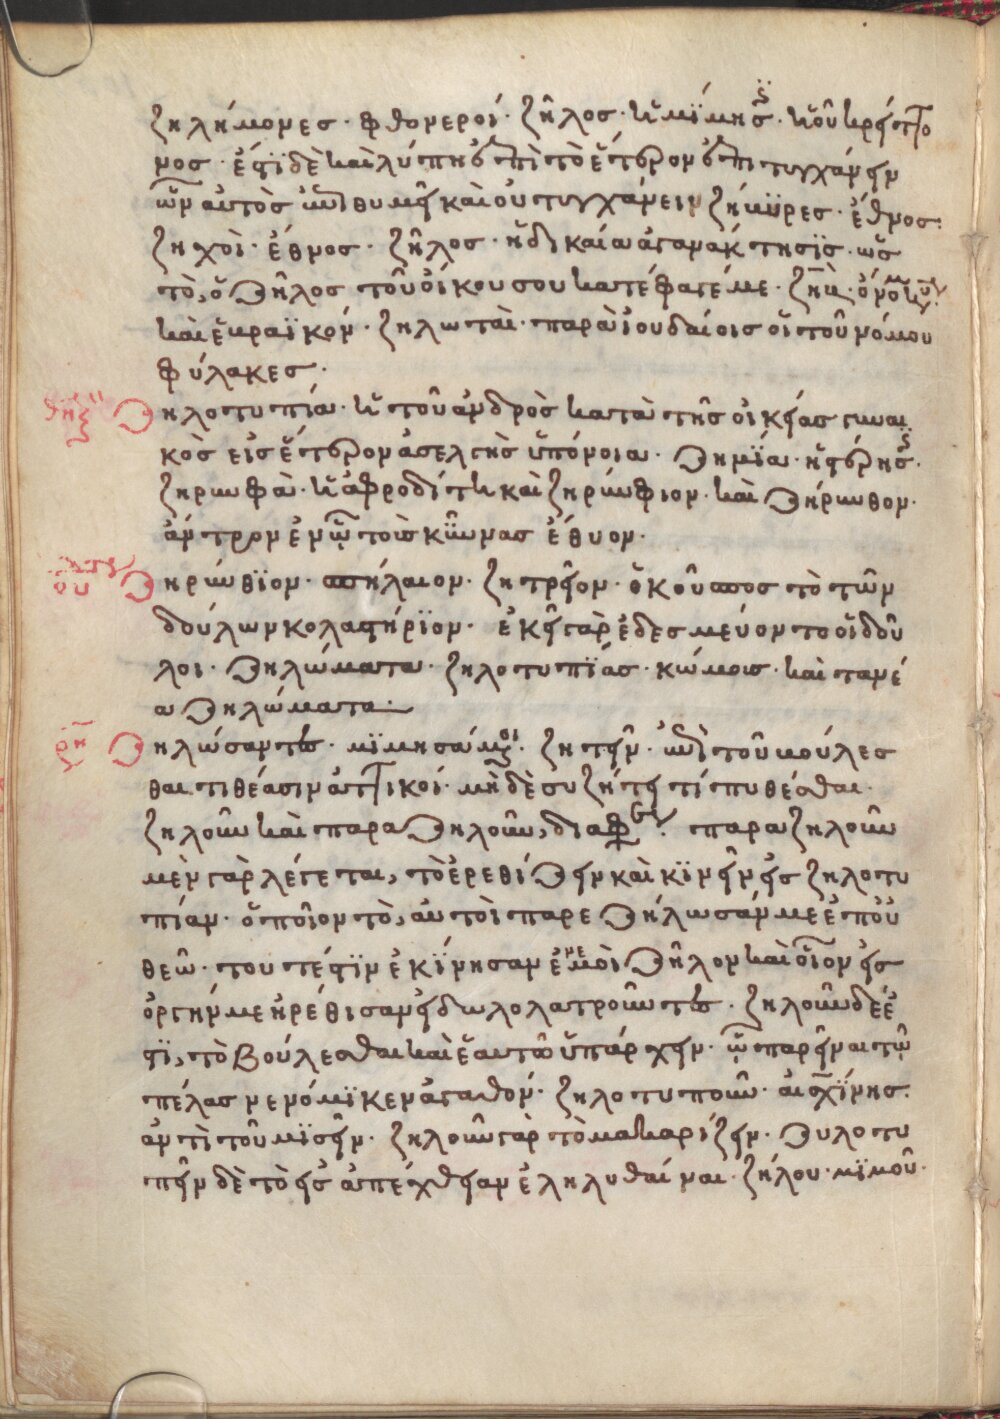 ζηλήμονες · φθονεροί · ζῆλος · ἡ μίμησϊς · ἢ οὐ κρεῖττο
νος · ἔστι δὲ καὶ λύπης ἐπὶ τὸ ἕτερον ἐπιτυγχάνειν
ὧν αὐτὸς ἐπιθυμεῖ καὶ οὐ τυγχάνειν ζήκϋρες · ἔθνος
ζηχοὶ · ἔθνος · ζῆλος · ἡ δικαία ἀγανάκτησϊς · ὡς
τὸ, ὁ ζῆλος τοῦ οἴκου σου κατέφαγέ με ·
καὶ ἑβραϊκόν · ζηλωταὶ · παρὰ ἰουδαίοις οἱ τοῦ νόμου
φύλακες ·
ζηλοτυπία · ἡ τοῦ ἀνδρὸς κατὰ τῆς οἰκείας γυναι
κὸς εἰς ἕτερον ἀσελγὴς ὑπόνοια · ζημΐα · ἡ στέρησϊς ·
ζηρυνθὰ · ἡ ἀφροδίτη καὶ ζηρύνθιον · καὶ ζήρυνθον ·
ἄντρον ἐν ᾧ τοὺς κύνας ἔθυον ·
ζηρύνθϊον · σπήλαιον · ζητρεῖον · ὁ κοῦσπος τὸ τῶν
δούλων κολαστήρϊον · ἐκεῖ γὰρ ἐδεσμεύοντο οἱ δοῦ
λοι · ζηλώματα · ζηλοτυπΐας · κώμοις · καὶ γαμέ
α ζηλώματα ·
ζηλώσαντες · μϊμησάμενοι · ζητεῖν · ἐπὶ τοῦ βούλεσ
θαι τιθέασιν ἀττικοί · μηδὲ συ ζήτει τί πυθέσθαι ·
ζηλοῦν καὶ παραζηλοῦν, διαφέρει · παραζηλοῦν
μὲν γὰρ λέγεται, τὸ ἐρεθίζειν καὶ κϊνεῖν εἰς ζηλοτυ
πίαν · ὁποῖον τὸ, αὐτοὶ παρεζήλωσάν με ἐπ' οὐ
θεῷ · τουτέστϊν ἐκΐνησαν ἐν ἐμοὶ ζῆλον καὶ οἷον εἰς
ὀργήν με ἠρέθισαν εἰδωλολατροῦντες · ζηλοῦν δέ ἐ
στϊ, τὸ βούλεσθαι καὶ ἑαυτῷ ὑπάρχειν · ὧν παρεῖναι τῷ
πέλας νενόμϊκεν ἀγαθόν · ζηλοτυποῦν · αἰσχΐνης ·
ἀντὶ τοῦ μϊσεῖν · ζηλοῦν γὰρ τὸ μακαρίζειν · ζυλοτυ
πεῖν δὲ τὸ εἰς ἀπέχθειαν ἐληλυθέναι · ζήλου · μϊμοῦ ·